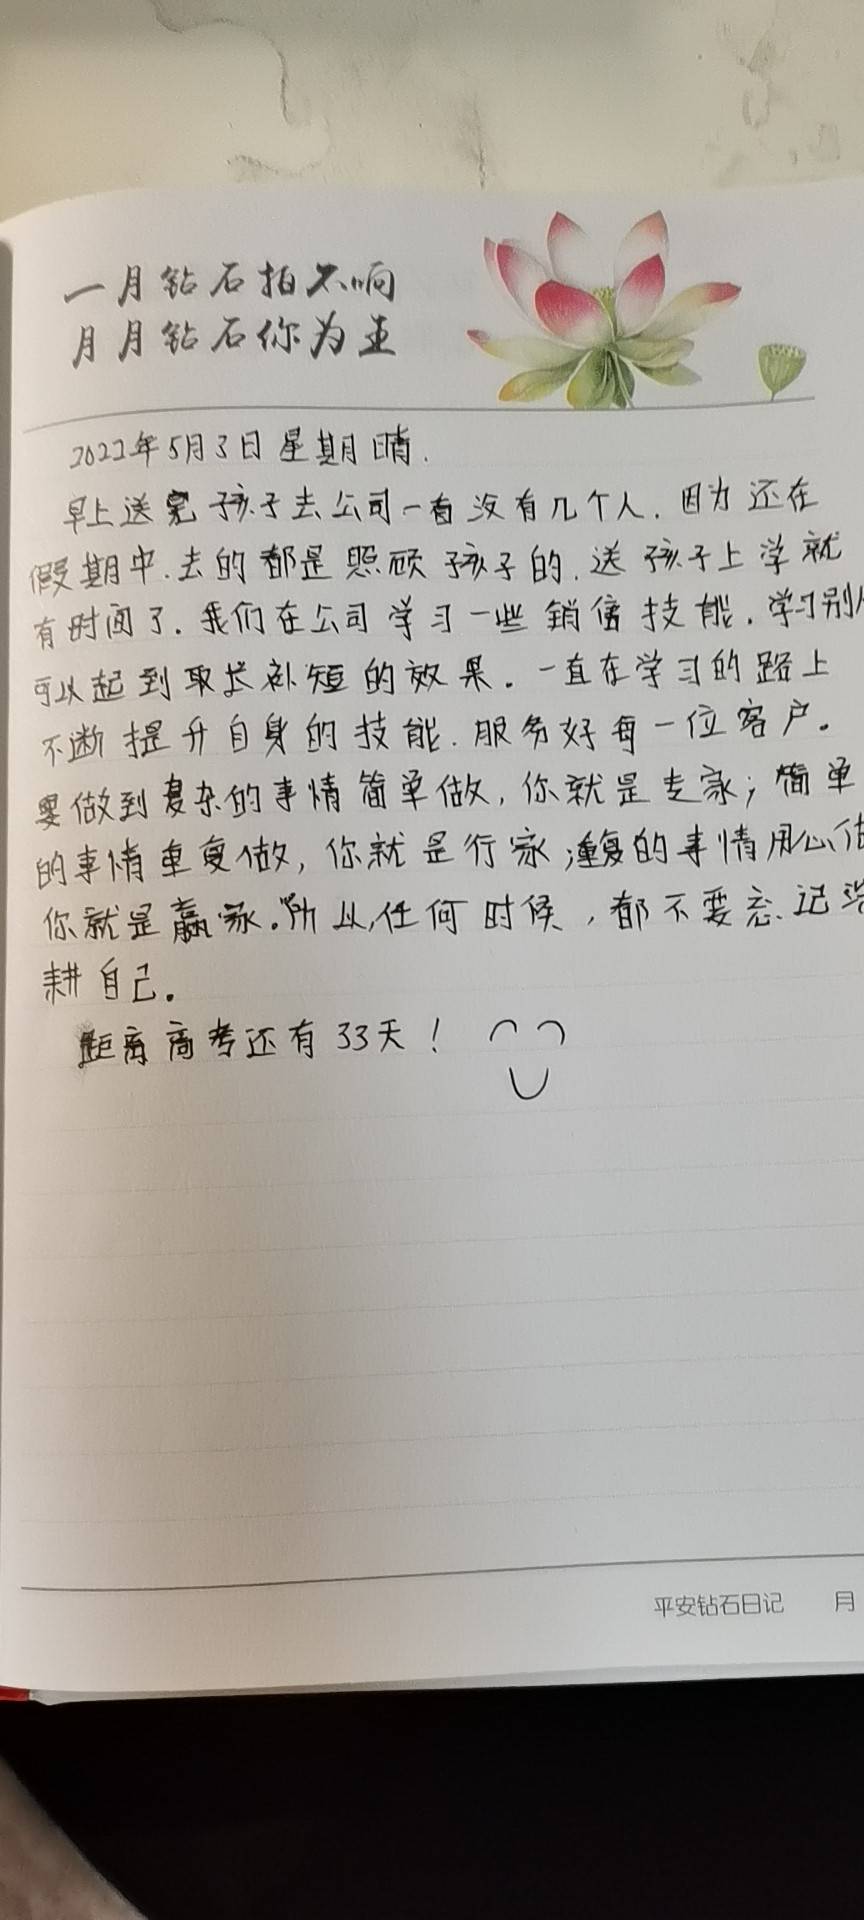 一月钻石拍不响
月月钻石你为主
2022年5月3日星期 晴.
早上送完孩子去公司一看没有几个人.因为还在
假期中.去的都是照顾孩子的.送孩子上学就
有时间了.我们在公司学习一些销售技能.学习别
可以起到取长补短的效果.一直在学习的路上
不断提升自身的技能.服务好每一位客户。
要做到复杂的事情简单做,你就是专家;简单
的事情重复做,你就是行家;重复的事情用心做
你就是赢家。所以,任何时候,都不要忘记
耕自己。
距离高考还有33天!
平安钻石日记 月